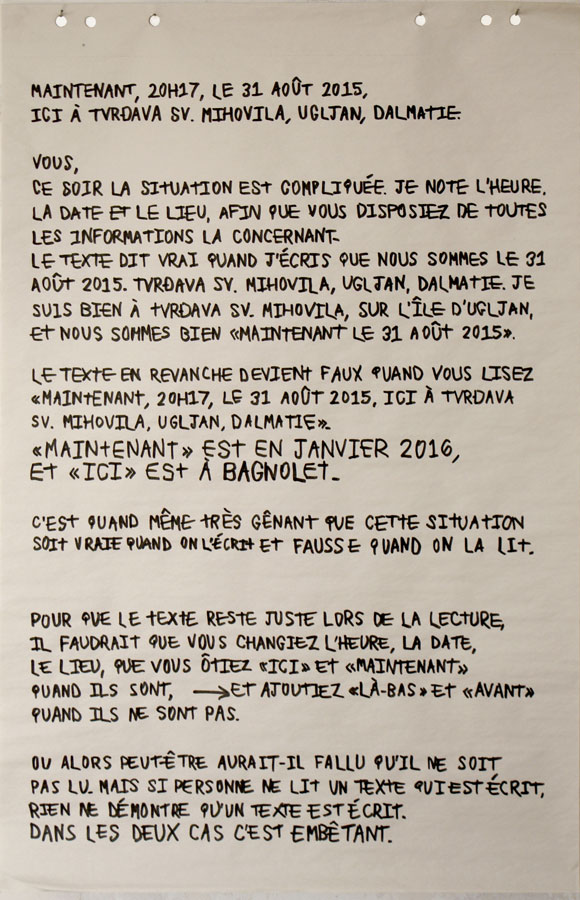 MAINTENANT, 20H17, LE 31 AOÛT 2015,
ICI À TVRĐAVA SV. MIHOVILA, UGLJAN, DALMATIE.
VOUS,
CE SOIR LA SITUATION EST COMPLIQUÉE. JE NOTE L'HEURE,
LA DATE ET LE LIEU, AFIN QUE VOUS DISPOSIEZ DE TOUTES
LES INFORMATIONS LA CONCERNANT.
LE TEXTE DIT VRAI QUAND J'ÉCRIS QUE NOUS SOMMES LE 31
AOÛT 2015. TVRĐAVA SV. MIHOVILA, UGLJAN, DALMATIE. JE
SUIS BIEN À TVRĐAVA SV. MIHOVILA, SUR L'ÎLE D'UGLJAN,
ET NOUS SOMMES BIEN «MAINTENANT LE 31 AOÛT 2015».
LE TEXTE EN REVANCHE DEVIENT FAUX QUAND VOUS LISEZ
«MAINTENANT, 20H17, LE 31 AOÛT 2015, ICI À TVRĐAVA
SV. MIHOVILA, UGLJAN, DALMATIE».
«MAINTENANT» EST EN JANVIER 2016,
ET «ICI» EST À BAGNOLET.
C'EST QUAND MÊME TRÈS GÊNANT QUE CETTE SITUATION
SOIT VRAIE QUAND ON L'ÉCRIT ET FAUSSE QUAND ON LA LIT.
POUR QUE LE TEXTE RESTE JUSTE LORS DE LA LECTURE,
IL FAUDRAIT QUE VOUS CHANGIEZ L'HEURE, LA DATE,
LE LIEU, QUE VOUS ÔTIEZ «ICI» ET «MAINTENANT»
QUAND ILS SONT, → ET AJOUTIEZ «LÀ-BAS» ET «AVANT»
QUAND ILS NE SONT PAS.
OU ALORS PEUT-ÊTRE AURAIT-IL FALLU QU'IL NE SOIT
PAS LU. MAIS SI PERSONNE NE LIT UN TEXTE QUI EST ÉCRIT,
RIEN NE DÉMONTRE QU'UN TEXTE EST ÉCRIT.
DANS LES DEUX CAS C'EST EMBÊTANT.